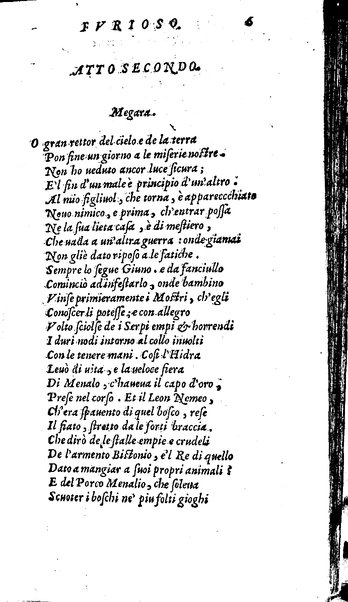 FVRIOSO. 6
ATTO SECONDO.
Megara.
O gran rettor del cielo e de la terra
Pon fine un giorno a le miserie nostre.
Non ho ueduto ancor luce sicura;
E'l fin d'un male è principio d'un'altro.
Al mio figliuol, che torna, è apparecchiato
Nouo nimico, e prima, ch'entrar possa
Ne la sua lieta casa, è di mestiero,
Che uada a un'altra guerra: onde giamai
Non gliè dato riposo a le fatiche.
Sempre lo segue Giuno. e da fanciullo
Cominciò ad'infestarlo, onde bambino
Vinse primieramente i Mostri, ch'egli
Conoscer li potesse; e con allegro
Volto sciolse de i Serpi empi & horrendi
I duri nodi intorno al collo inuolti
Con le tenere mani. Così l'Hidra
Leuò di uita, e la ueloce fiera
Di Menalo, c'haueua il capo d'oro,
Prese nel corso. Et il Leon Nemeo,
Ch'era spauento di quel bosco, rese
Il fiato, stretto da le forti braccia.
Che dirò de le stalle empie e crudeli
De l'armento Bistonio, e'l Re di quello
Dato a mangiar a suoi propri animali?
E del Porco Menalio, che solena
Scuoter i boschi ne' piu folti gioghi